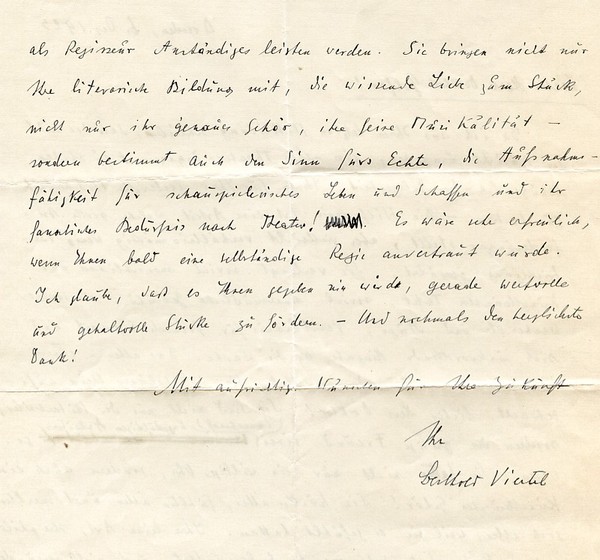 als Regisseur Anständiges leisten werden. Sie bringen nicht nur
Ihre literarische Bildung mit, die wissende Liebe zum Stück,
nicht nur ihr genaues Gehör, ihre feine Musikalität —
sondern bestimmt auch den Sinn fürs Echte, die Aufnahme-
fähigkeit für schauspielerisches Leben und Schaffen und ihr
Bedürfnis nach Theater! Es wäre sehr erfreulich,
wenn Ihnen bald eine selbständige Regie anvertraut würde.
Ich glaube, daß es Ihnen gegeben sein würde, gerade wertvolle
und gehaltvolle Stücke zu fördern. — Und nochmals den herzlichsten
Dank!
Mit aufrichtigen Wünschen für Ihre Zukunft
Ihr
Berthold Viertel